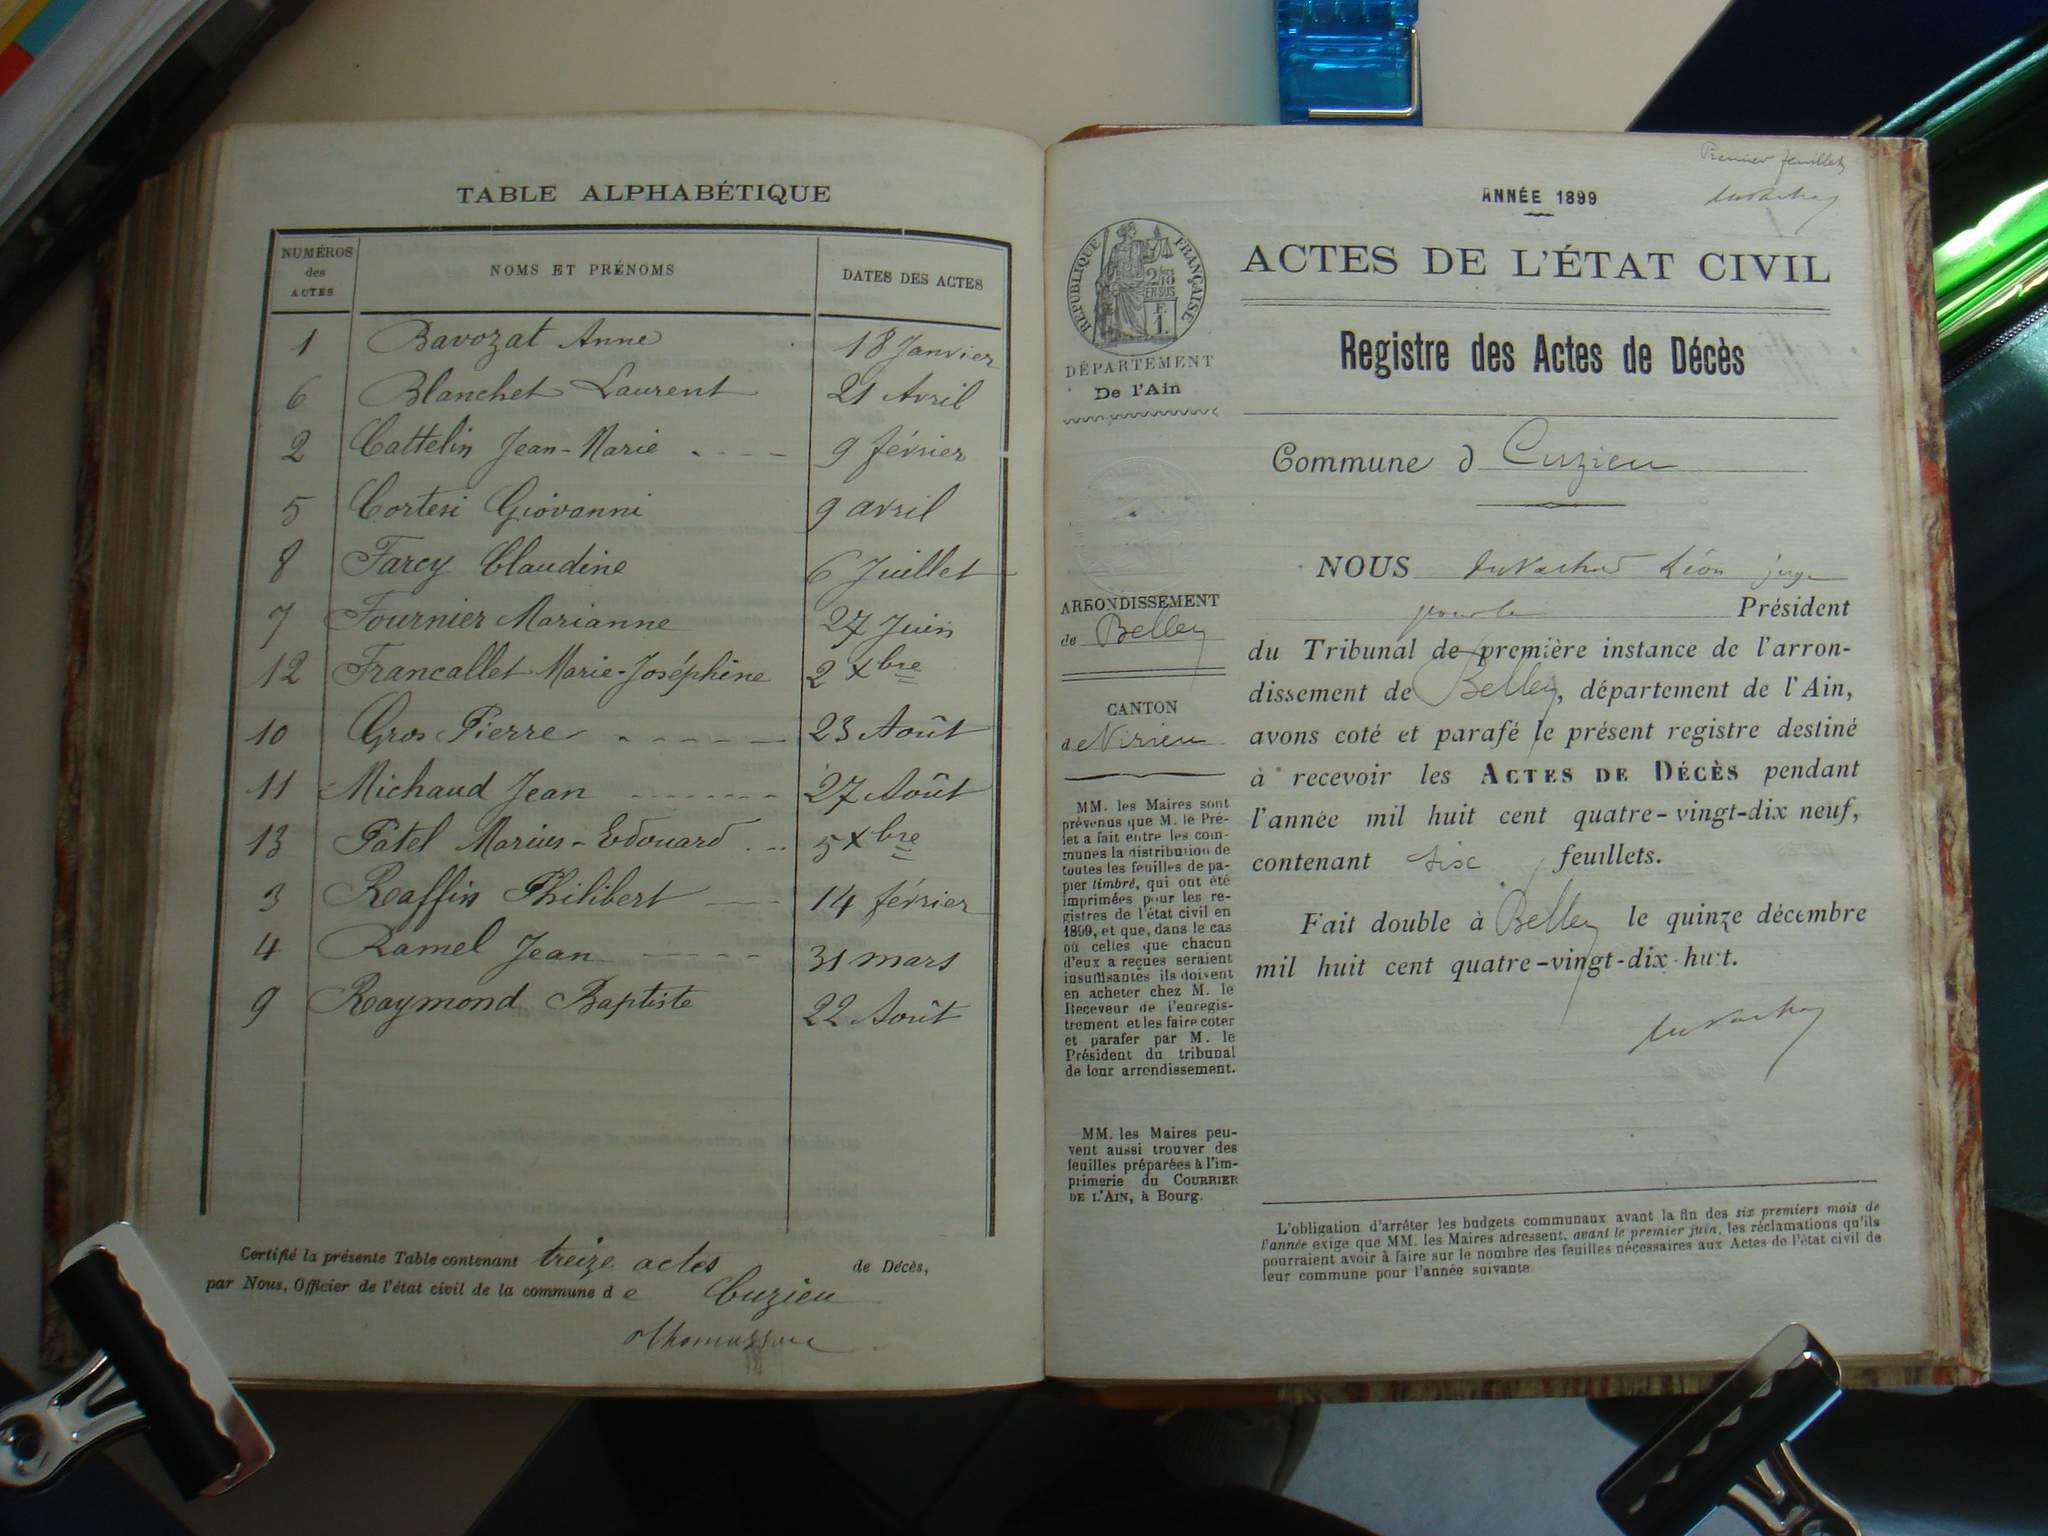 TABLE ALPHABÉTIQUE
NUMÉROS des ACTES NOMS ET PRÉNOMS DATES DES ACTES
1 Bavozat Anne 18 Janvier
6 Blanchet Laurent 21 Avril
2 Cattelin Jean-Marie 9 février
5 Cortesi Giovanni 9 avril
8 Farcy Claudine 6 Juillet
7 Fournier Marianne 27 Juin
12 Francallet Marie-Joséphine 2 Xbre
10 Gros Pierre 23 Août
11 Michaud Jean 27 Août
13 Patel Marius-Edouard 5 Xbre
3 Raffin Philibert 14 février
4 Ramel Jean 31 mars
9 Raymond Baptiste 22 Août
Certifié la présente Table contenant treize actes de Décès,
par Nous, Officier de l'état civil de la commune de Cuzieu
Premier feuillet
ANNÉE 1899
RÉPUBLIQUE FRANÇAISE
2/10 EN SUS
F. 1.
DÉPARTEMENT
De l'Ain
ACTES DE L'ÉTAT CIVIL
Registre des Actes de Décès
Commune d Cuzieu
ARRONDISSEMENT
de Belley
CANTON
de Virieu
MM. les Maires sont
prévenus que M. le Pré-
fet a fait entre les com-
munes la distribution de
toutes les feuilles de pa-
pier timbré, qui ont été
imprimées pour les re-
gistres de l'état civil en
1899, et que, dans le cas
où celles que chacun
d'eux a reçues seraient
insuffisantes ils doivent
en acheter chez M. le
Receveur de l'enregis-
trement et les faire coter
et parafer par M. le
Président du tribunal
de leur arrondissement.
MM. les Maires peu-
vent aussi trouver des
feuilles préparées à l'im-
primerie du COURRIER
DE L'AIN, à Bourg.
NOUS Léon juge
pour le Président
du Tribunal de première instance de l'arron-
dissement de Belley, département de l'Ain,
avons coté et parafé le présent registre destiné
à recevoir les ACTES DE DÉCÈS pendant
l'année mil huit cent quatre-vingt-dix neuf,
contenant six feuillets.
Fait double à Belley le quinze décembre
mil huit cent quatre-vingt-dix-huit.
L'obligation d'arrêter les budgets communaux avant la fin des six premiers mois de
l'année exige que MM. les Maires adressent, avant le premier juin, les réclamations qu'ils
pourraient avoir à faire sur le nombre des feuilles nécessaires aux Actes de l'état civil de
leur commune pour l'année suivante